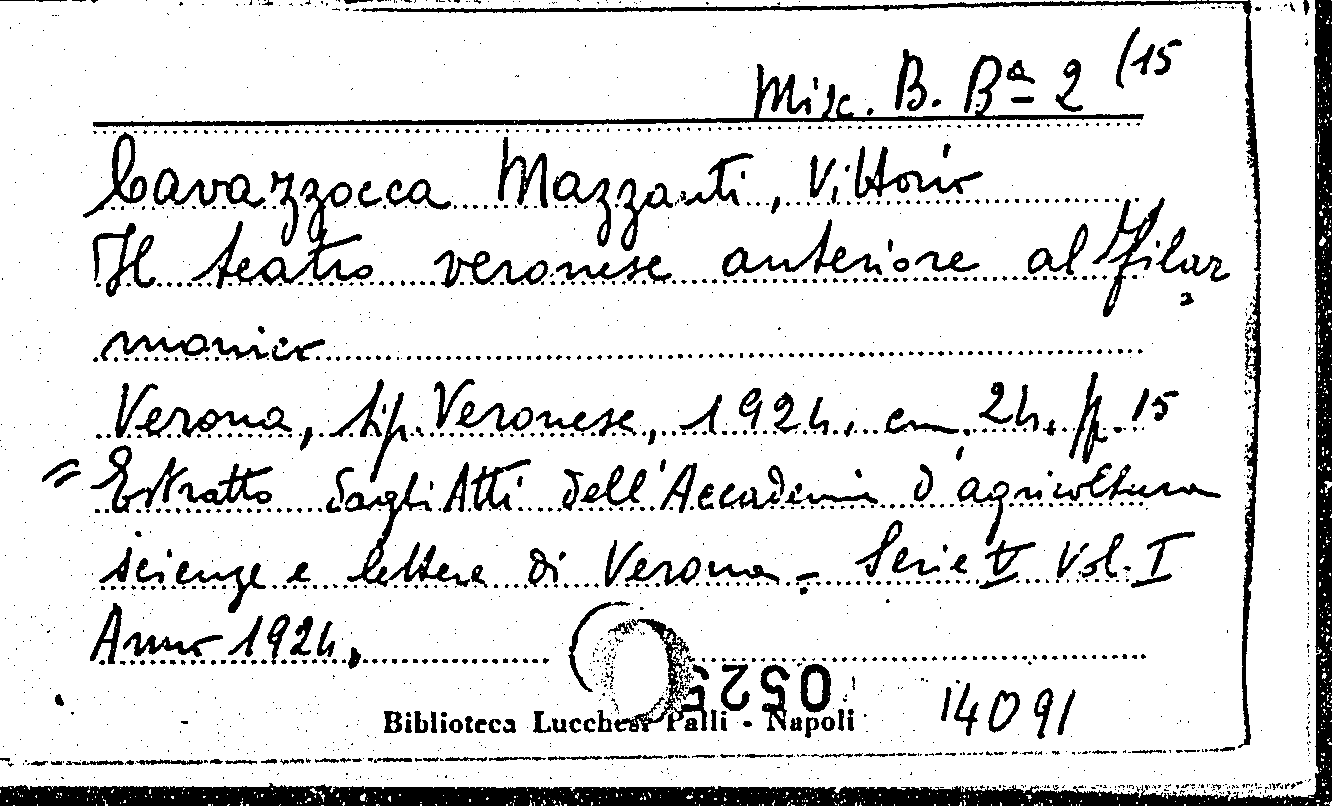 Misc. B. Bª 2 (15
Cavazzocca Mazzanti, Vittorio
Il teatro veronese anteriore al Filar
monico
Verona, tip. Veronese, 1924, cm. 24. pp. 15
= Estratto dagli Atti dell'Accademia d'agricoltura
scienze e lettere di Verona - Serie V Vol. I
Anno 1924.
Biblioteca Lucchesi Palli - Napoli
14091